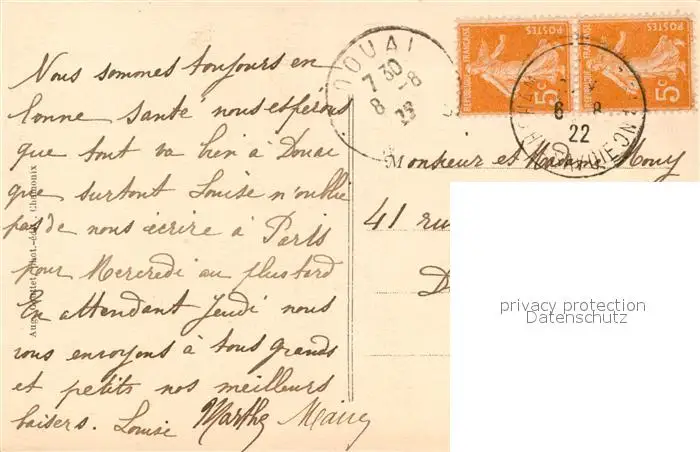 Nous sommes toujours en
bonne santé nous espérons
que tout va bien à Douai
que surtout Louise n'oublie
pas de nous écrire à Paris
pour Mercredi au plus tard
En attendant Jeudi nous
vous envoyons à tous grands
et petits nos meilleurs
baisers. Louise Marthe
Monsieur et Madame
41 ru
D
DOUAI
7 30
8 - 8
POSTES
RÉPUBLIQUE FRANÇAISE
5c
POSTES
5c
6 - 8
22
Phot.-édit. Chamonix
privacy protection
Datenschutz